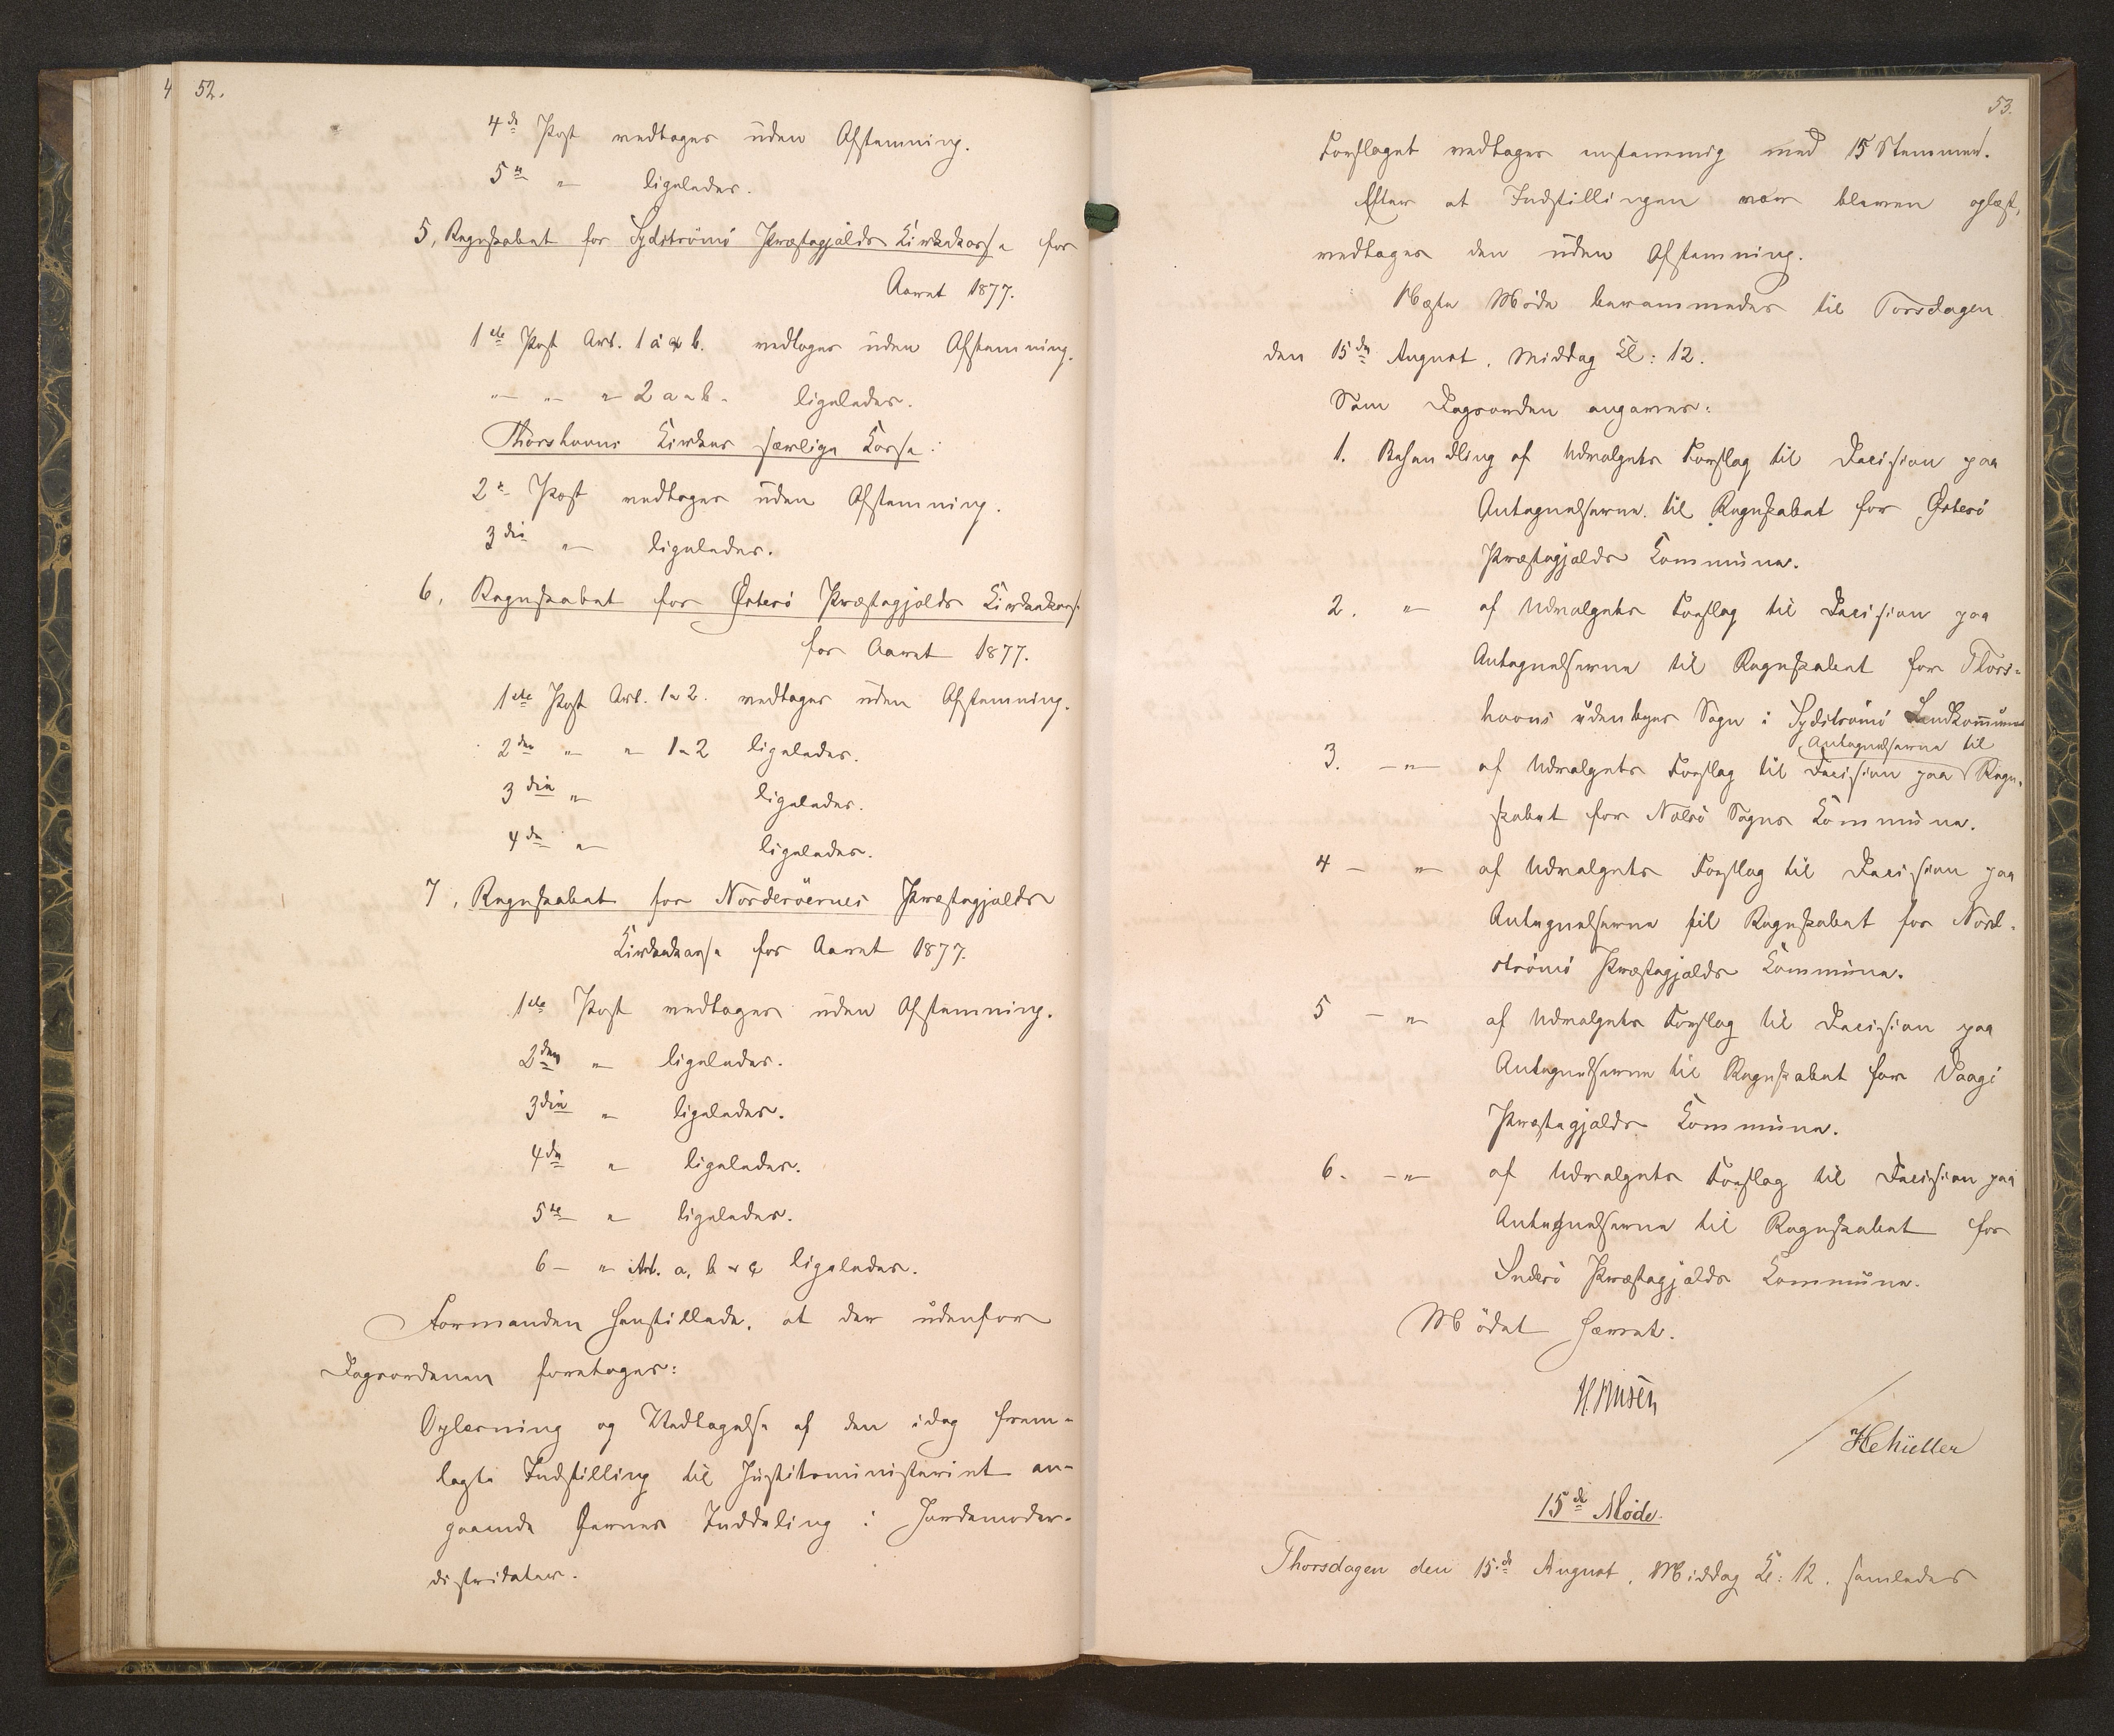 52.
4de Post vedtoges uden Afstemning.
5te " ligeledes.
5, Regnskabet for Syderströmö Præstegjælds Kirkekasse for
Aaret 1877.
1ste Post Art. 1 a og b. vedtoges uden Afstemning.
" " " 2 a " b " ligeledes.
Thorshavns Kirkes særlige Kasse:
2den Post vedtoges uden Afstemning.
3die " ligeledes.
6, Regnskabet for Österö Præstegjælds Kirkekasse
for Aaret 1877.
1ste Post Art. 1 " 2. vedtoges uden Afstemning.
2den " " 1 " 2 ligeledes.
3die " ligeledes.
4de " ligeledes.
7, Regnskabet for Norderöernes Præstegjælds
Kirkekasse for Aaret 1877.
1ste Post vedtoges uden Afstemning.
2den " ligeledes.
3die " ligeledes.
4de " ligeledes.
5te " ligeledes.
6 – " Art. a, b " c ligeledes.
Formanden henstillede, at der udenfor
Dagsordenen foretoges:
Oplæsning og Vedtagelse af den idag frem-
lagte Indstilling til Justitsministeriet an-
gaaende Øernes Inddeling i Jordemoder-
distrikter.
53.
Forslaget vedtoges enstemmig med 15 Stemmer.
Efter at Indstillingen var bleven oplæst,
vedtoges den uden Afstemning.
Næste Möde berammedes til Torsdagen
den 15de August, Middag Kl: 12.
Som Dagsorden angaves:
1. Behandling af Udvalgets Forslag til Decision paa
Antegnelserne til Regnskabet for Österö
Præstegjælds Kommune.
2. " af Udvalgets Forslag til Decision paa
Antegnelserne til Regnskabet for Thors-
havns udenbyes Sogn i Syderströmö Landkommune
Antegnelserne til
3. – " – af Udvalgets Forslag til Decision paa Regn-
skabet for Nolsö Sogns Kommune.
4 – " af Udvalgets Forslag til Decision paa
Antegnelserne til Regnskabet for Nord-
strömö Præstegjælds Kommune.
5 – " af Udvalgets Forslag til Decision paa
Antegnelserne til Regnskabet for Vaagö
Præstegjælds Kommune.
6. – " – af Udvalgets Forslag til Decision paa
Antegnelserne til Regnskabet for
Suderö Præstegjælds Kommune.
Mödet hævet.
/ HCMüller
15de Möde.
Thorsdagen den 15de August, Middag Kl: 12. samledes